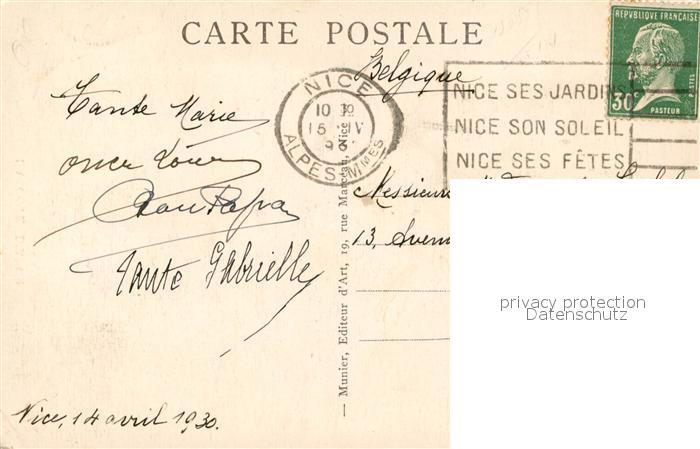 CARTE POSTALE
REPVBLIQUE FRANÇAISE
POSTES
30c
PASTEUR
Belgique
NICE
10 30
15 IV
ALPES MMES
NICE SES JARDINS
NICE SON SOLEIL
NICE SES FÊTES
Tante Marie
Bon Papa
Tante Gabrielle
Nice, 14 avril 1930.
— Munier, Editeur d'Art, 19, rue Marceau, Nice
Messieurs
13, Aven
privacy protection
Datenschutz